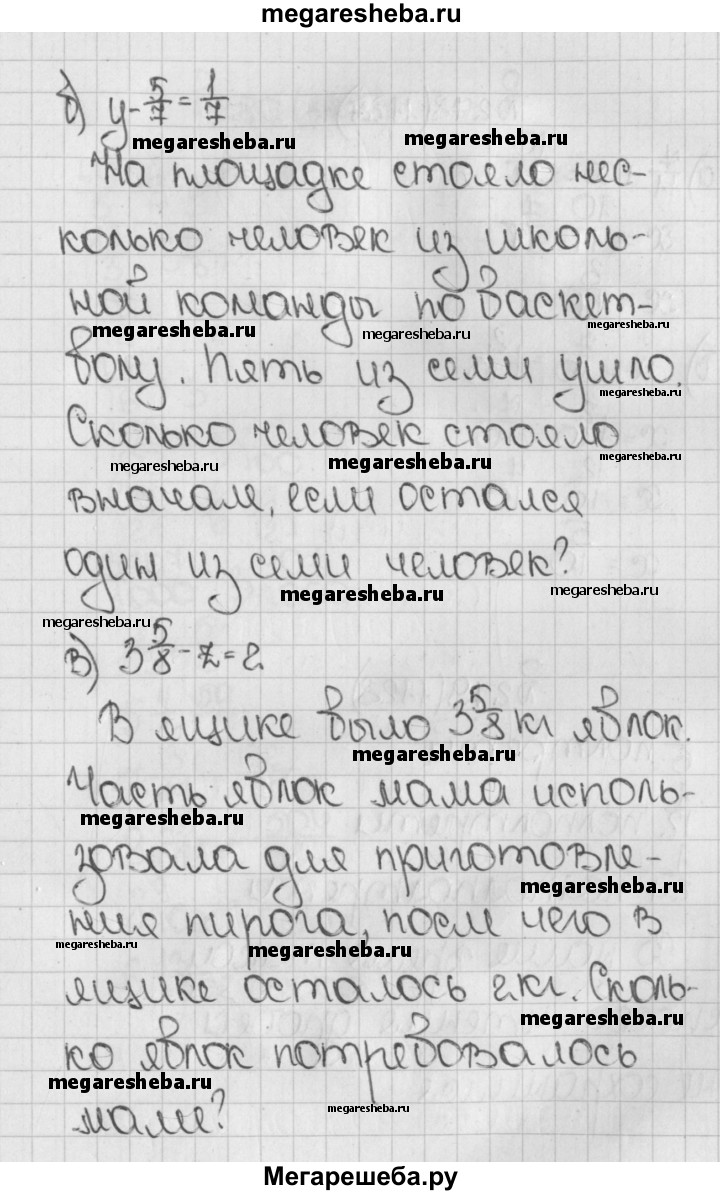 megaresheba.ru
б) y - 5/7 = 1/7
megaresheba.ru megaresheba.ru
На площадке стояло нес-
колько человек из школь-
ной команды по баскет-
megaresheba.ru megaresheba.ru megaresheba.ru
болу. Пять из семи ушло.
megaresheba.ru
Сколько человек стояло
megaresheba.ru megaresheba.ru megaresheba.ru
вначале, если остался
один из семи человек?
megaresheba.ru megaresheba.ru
megaresheba.ru
в) 3 5/8 - z = 2
В ящике было 3 5/8 кг яблок.
megaresheba.ru
Часть яблок мама исполь-
megaresheba.ru
зовала для приготовле-
megaresheba.ru
ния пирога, после чего в
megaresheba.ru megaresheba.ru
ящике осталось 2 кг. Сколь-
megaresheba.ru
ко яблок потребовалось
megaresheba.ru
маме?
megaresheba.ru
Мегарешеба.ру